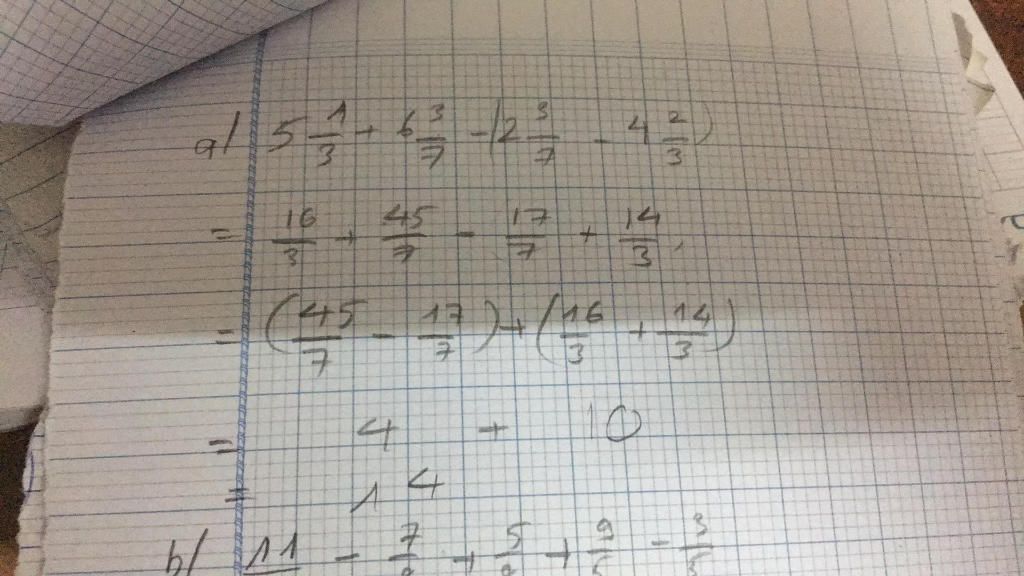 a/ 5 1/3 + 6 3/7 - (2 3/7 - 4 2/3)
= 16/3 + 45/7 - 17/7 + 14/3
= (45/7 - 17/7) + (16/3 + 14/3)
= 4 + 10
= 14
b/ 11 - 7 + 5 + 9 - 3